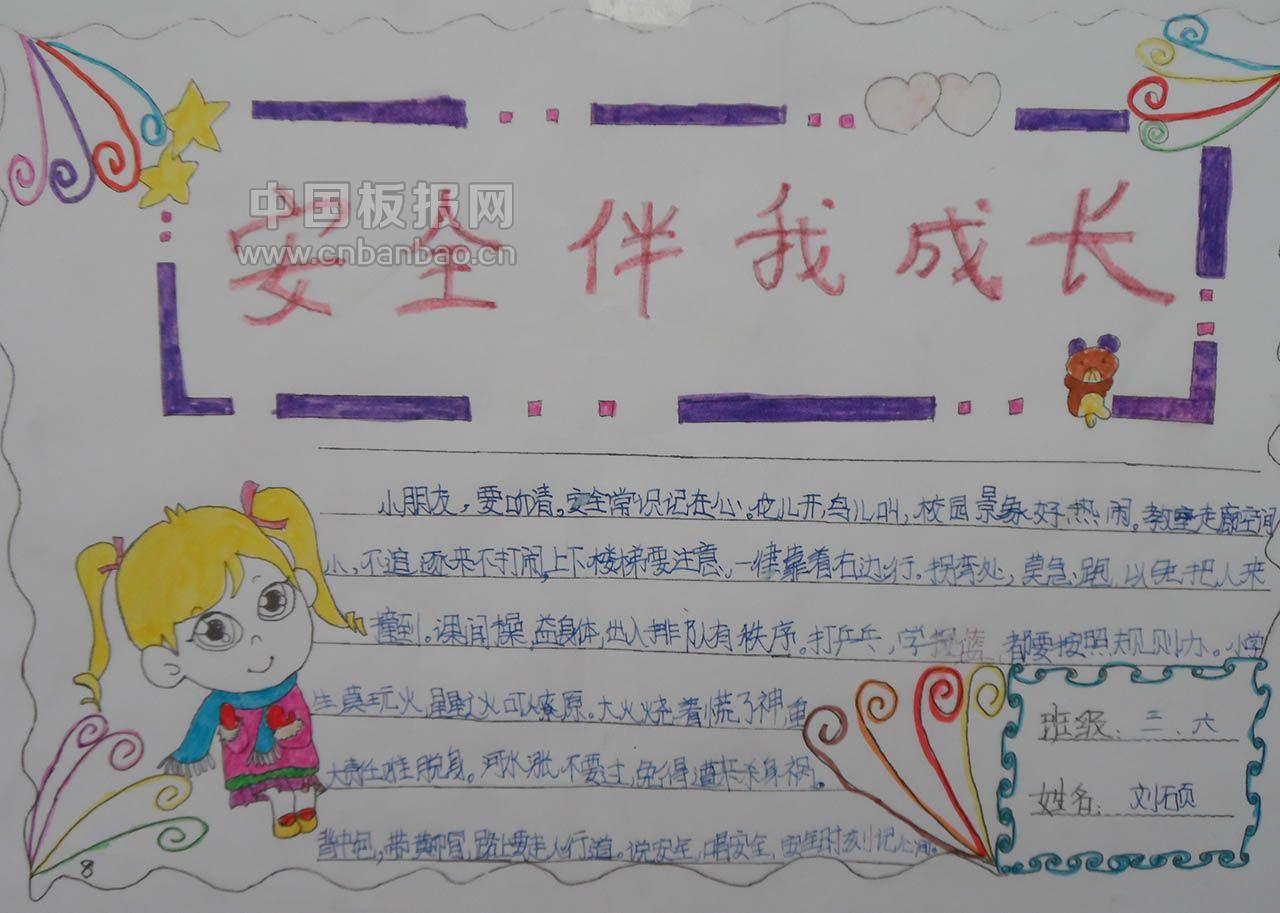 中国板报网
www.cnbanbao.cn
安全伴我成长
小朋友，要听清。安全常识记在心。花儿开，鸟儿叫，校园景象好热闹。教室走廊空间
小，不追逐来不打闹，上下楼梯要注意，一律靠着右边行。拐弯处，莫急跑，以免把人来
撞到。课间操，益身体，出入排队有秩序。打乒乓，学投篮，都要按照规则办。小学
生莫玩火，星星火可以燎原。大火烧着慌了神，
大难在难脱身。河水涨，不要过，免得遭来杀身祸。
背书包，带黄帽，路上要走人行道。说安全，唱安全，安全时刻记心间。
班级：三、六
姓名：刘硕
8